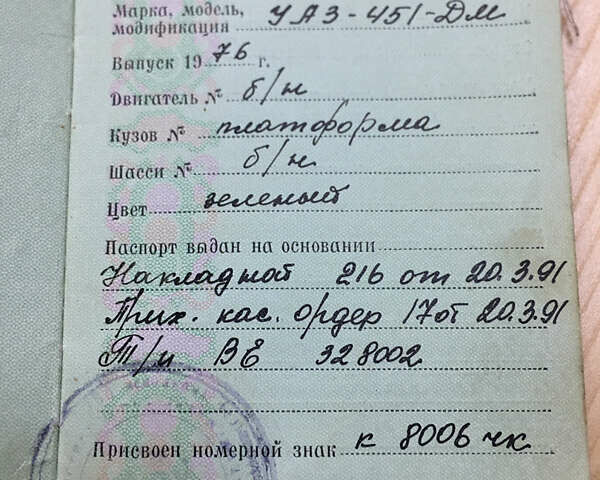 Марка, модель, УАЗ-451-ДМ
модификация
Выпуск 19 76 г.
Двигатель № б/н
Кузов № платформа
Шасси № б/н
Цвет зеленый
Паспорт выдан на основании
Накладной 216 от 20.3.91
Прих. кас. ордер 17 от 20.3.91
Т/и ВЕ 328002
Присвоен номерной знак к 8006 чк